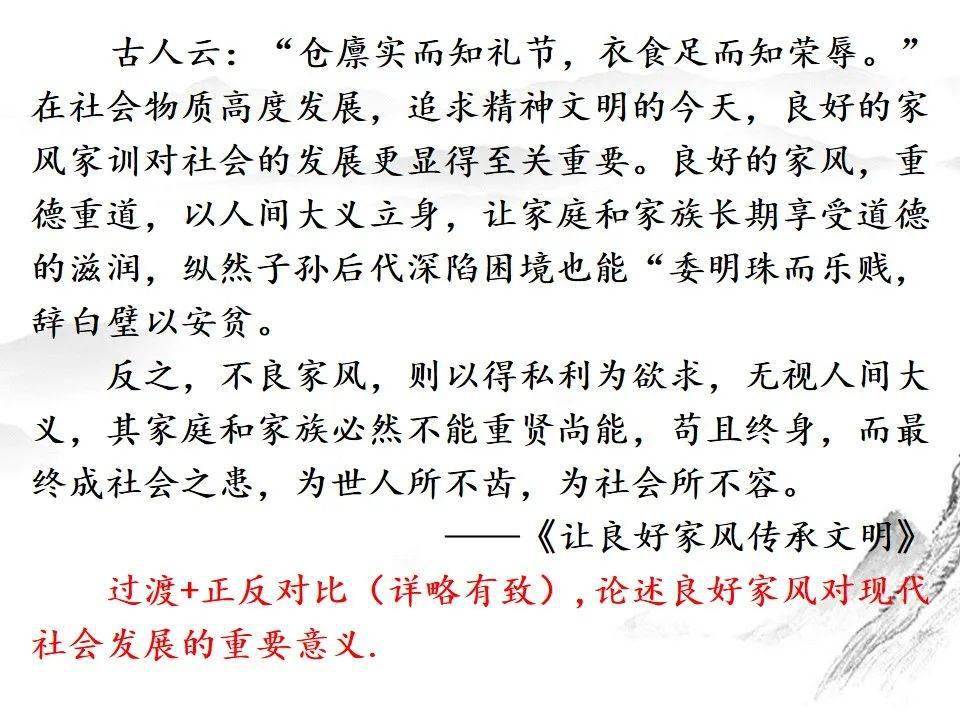 古人云：“仓廪实而知礼节，衣食足而知荣辱。”
在社会物质高度发展，追求精神文明的今天，良好的家
风家训对社会的发展更显得至关重要。良好的家风，重
德重道，以人间大义立身，让家庭和家族长期享受道德
的滋润，纵然子孙后代深陷困境也能“委明珠而乐贱，
辞白璧以安贫。
反之，不良家风，则以得私利为欲求，无视人间大
义，其家庭和家族必然不能重贤尚能，苟且终身，而最
终成社会之患，为世人所不齿，为社会所不容。
——《让良好家风传承文明》
过渡+正反对比（详略有致）,论述良好家风对现代
社会发展的重要意义.